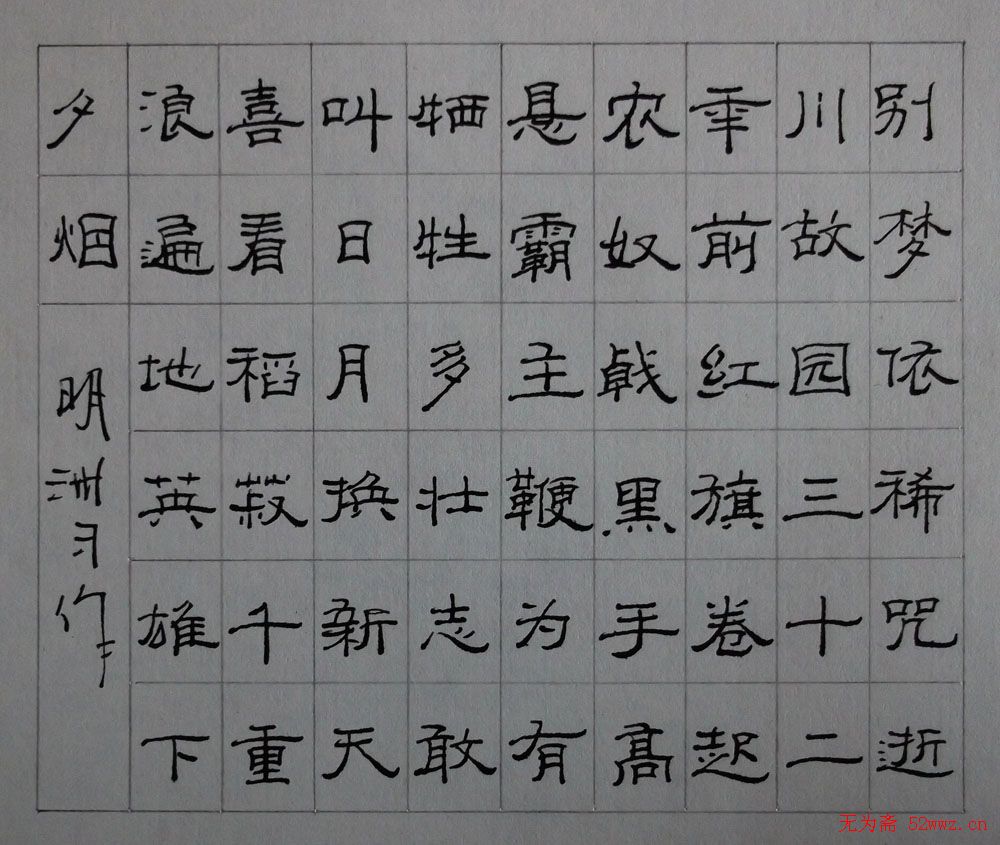 别梦依稀咒逝
川故园三十二
年前红旗卷起
农奴戟黑手高
悬霸主鞭为有
牺牲多壮志敢
叫日月换新天
喜看稻菽千重
浪遍地英雄下
夕烟
明洲习作
无为斋 52wwz.cn